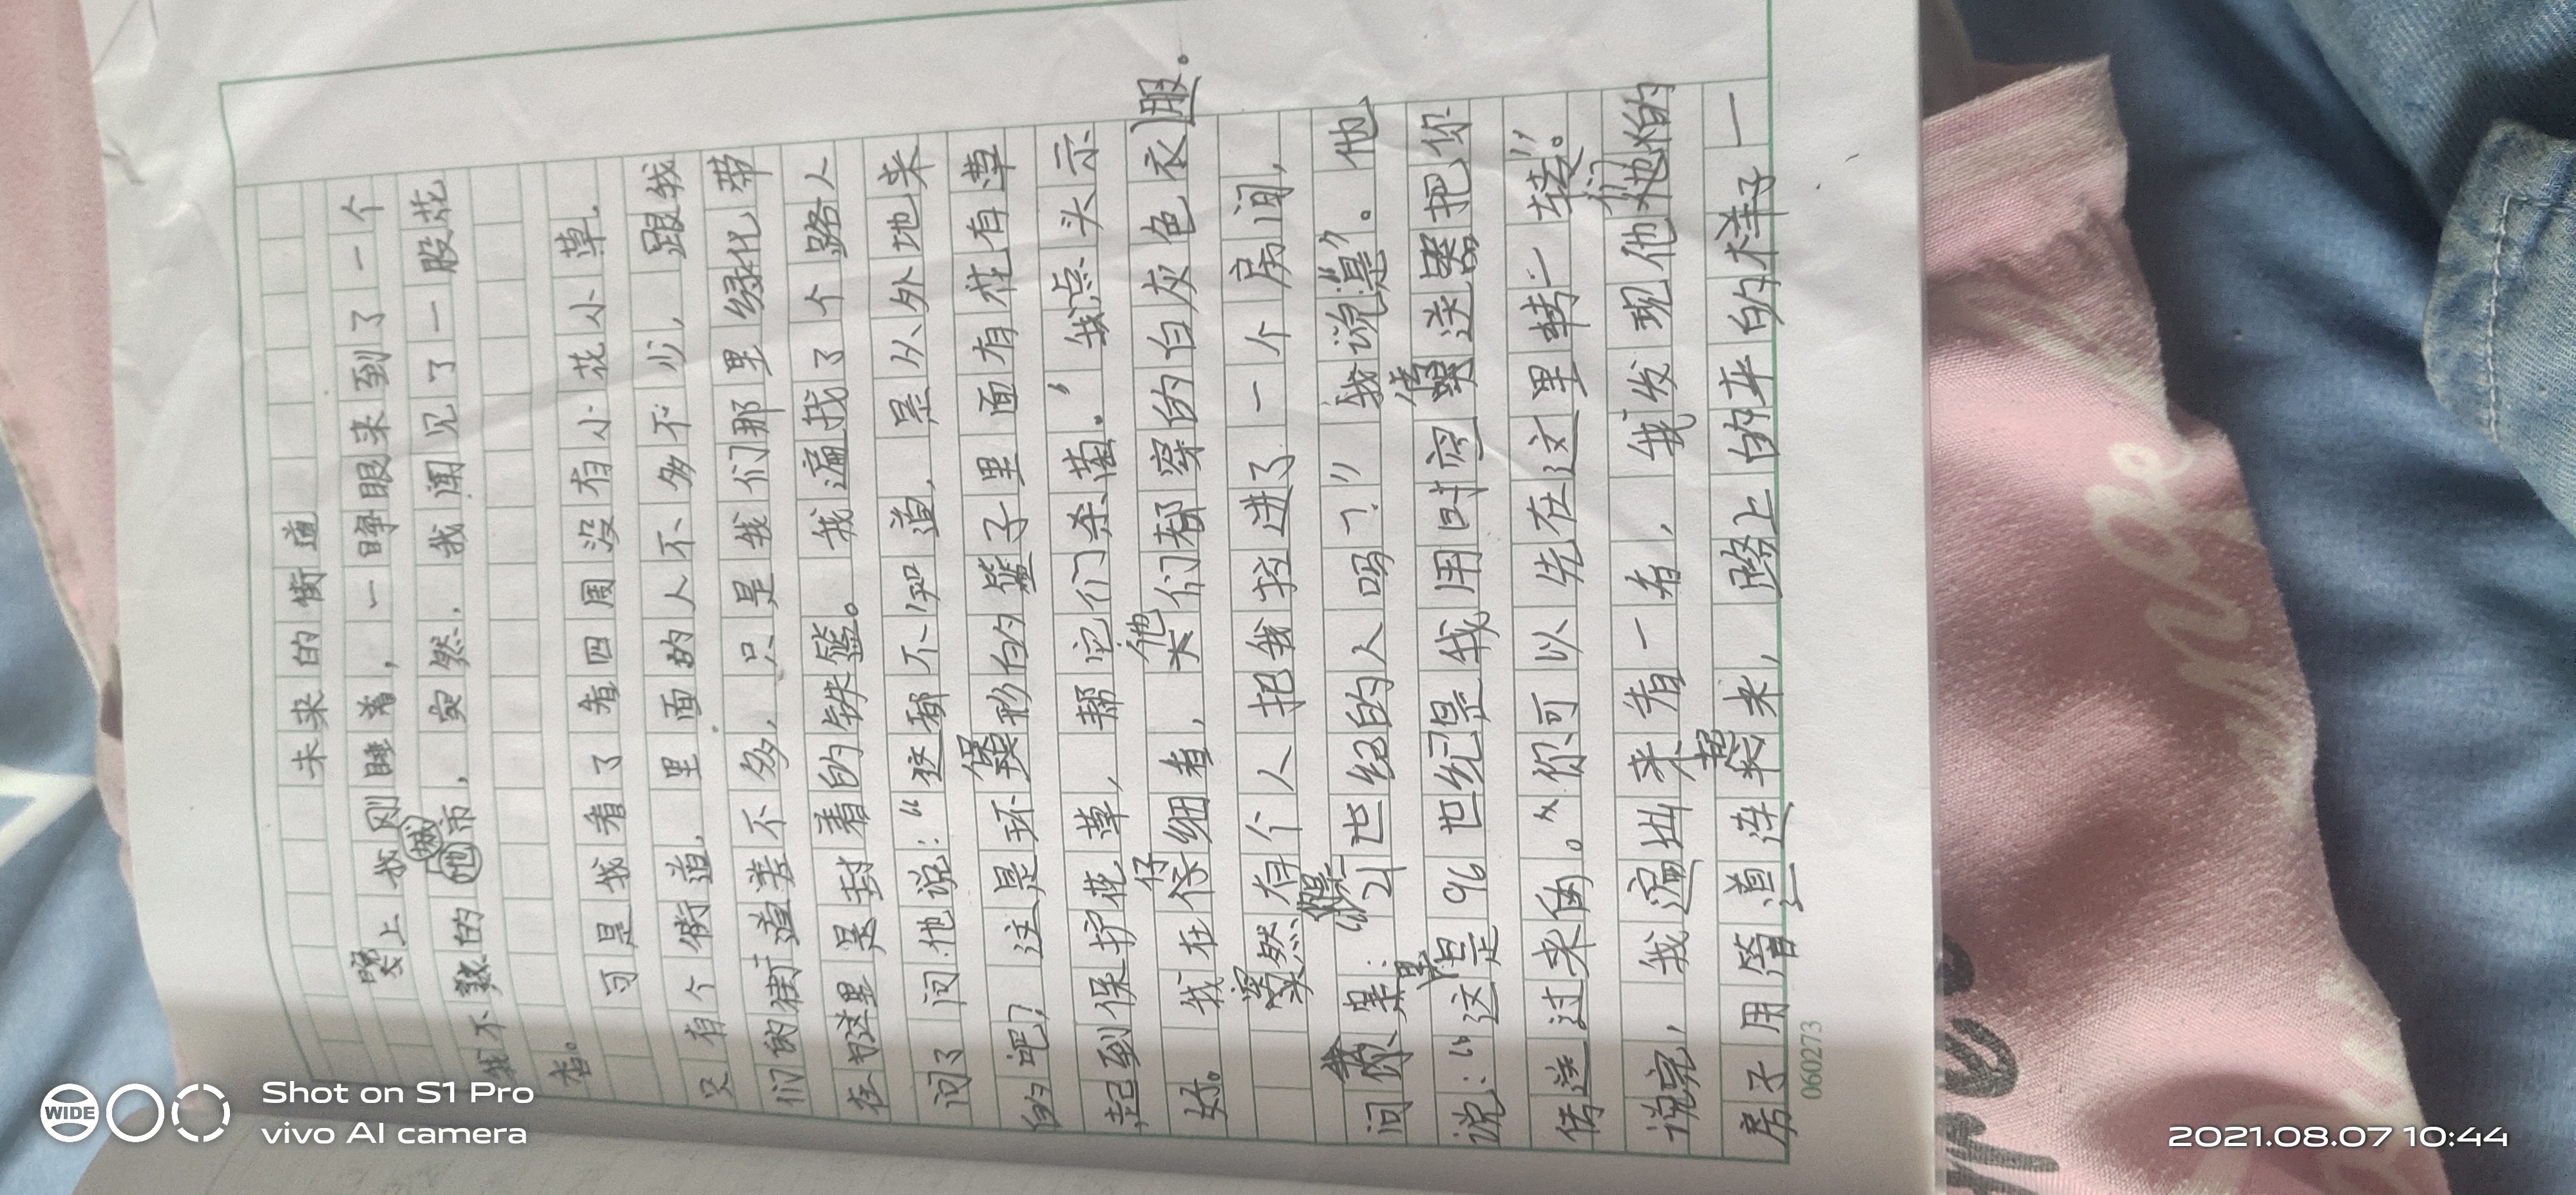 未来的街道
晚上我刚睡着，一睁眼来到了一个
我不熟的城市，突然，我闻见了一股花
香。
可是我看了看四周没有小花小草.
只有个街道，里面的人不多不少，跟我
们的街道差不多，只是我们那里绿化带
在这里是封着的铁篮。我遍找了个路人
问了问他说：“这都不知道，是从外地来
的吧？这是环保形的篮子里面有花有草
起到保护花草，帮它们杀菌。”我点头示
好。我在仔细看，他们都穿的白灰色衣服。
突然有个人把我拉进了一个房间，
问你是：“21世纪的人吗？”我说“是”。他
说：“这里是96世纪是我用时空传送器把你
传送过来的。”“你可以先在这里转一转”。
说完，我遍出来看一看，我发现他们的
房子用管道连起来，路上的车的样子一
060273
WIDE
Shot on S1 Pro
vivo AI camera
2021.08.07 10:44